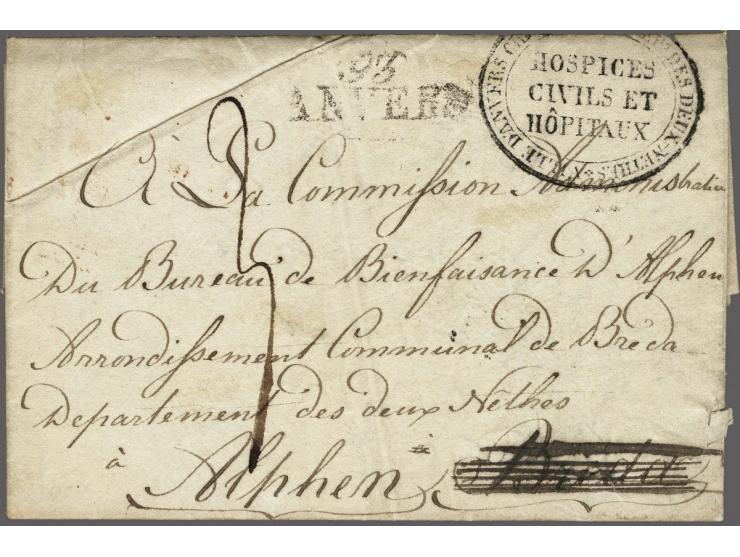 93
ANVERS
HOSPICES
CIVILS ET
HÔPITAUX
DES DEUX-NETHES
VILLE D'ANVERS
À La Commission Administrative
Du Bureau de Bienfaisance D'Alphen
Arrondissement Communal de Breda
Departement des deux Nèthes
à Alphen à Breda
3